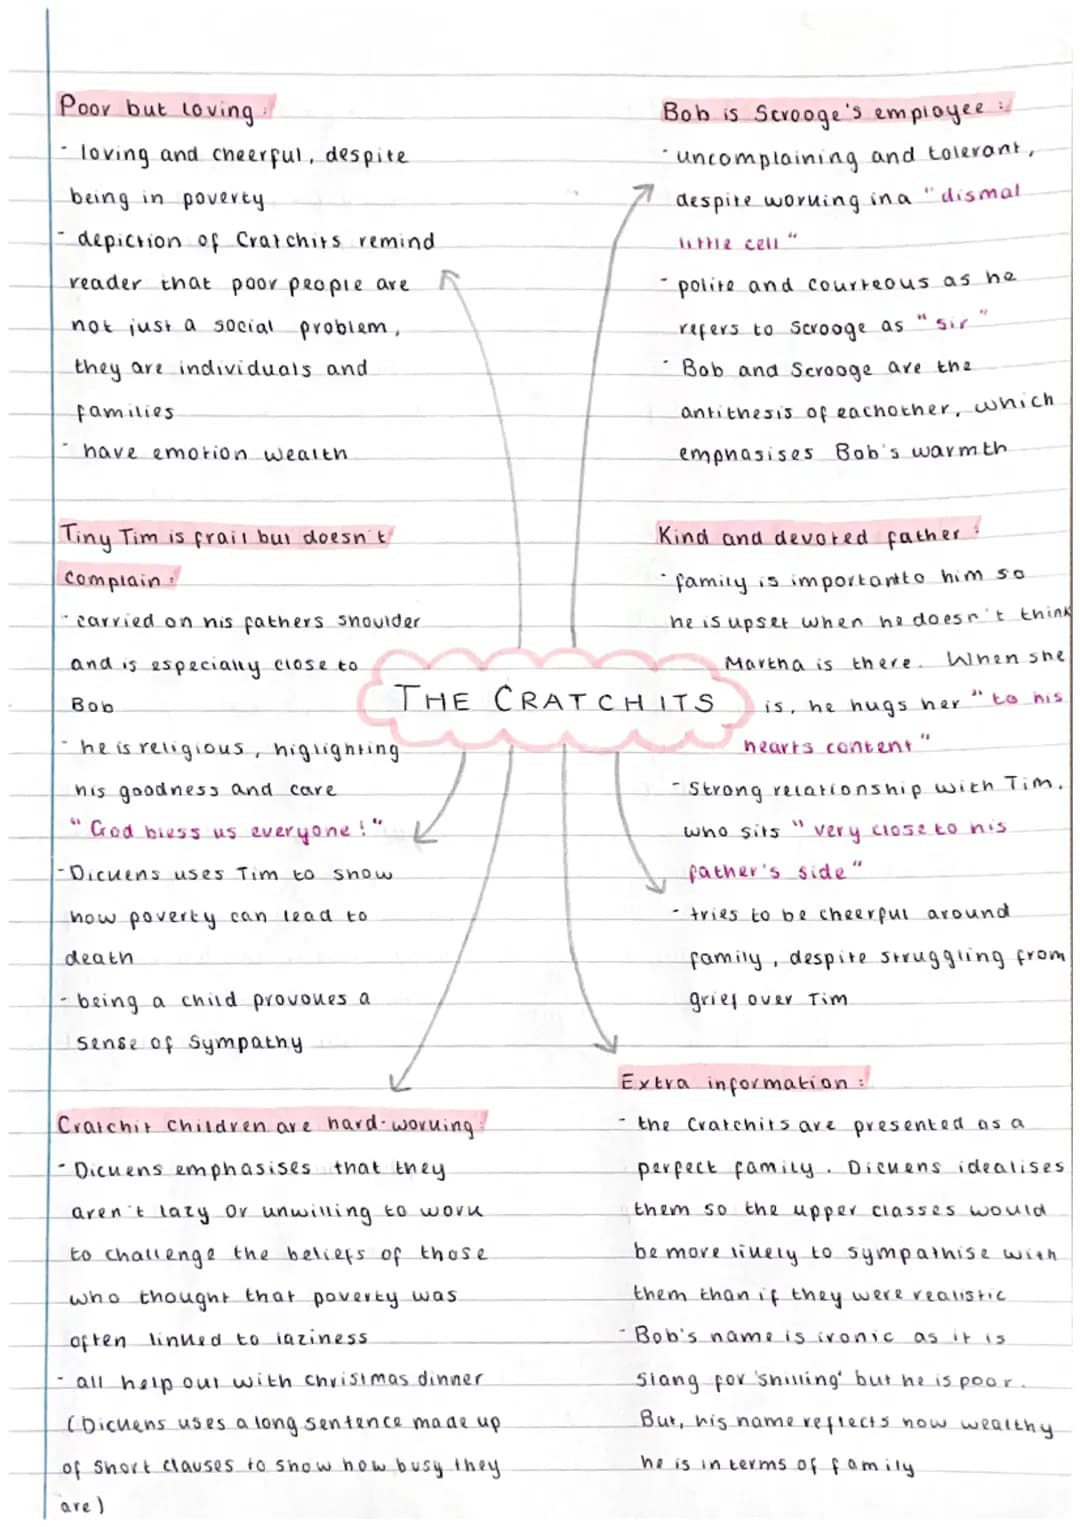 Poor but loving:
- loving and cheerful, despite
being in poverty
- depiction of Cratchits remind
reader that poor people are
not just a social problem,
they are individuals and
families
- have emotion wealth
Bob is Scrooge's employee:
- uncomplaining and tolerant,
despite working in a "dismal
little cell"
- polite and courteous as he
refers to Scrooge as "sir"
- Bob and Scrooge are the
antithesis of eachother, which
emphasises Bob's warmth
Tiny Tim is frail but doesn't
complain:
- carried on his fathers shoulder
and is especially close to
Bob
- he is religious, higlighting
his goodness and care
"God bless us everyone!"
- Dickens uses Tim to show
how poverty can lead to
death
- being a child provokes a
sense of sympathy
THE CRATCHITS
Kind and devoted father:
- family is important to him so
he is upset when he doesn't think
Martha is there. When she
is, he hugs her "to his
hearts content"
- Strong relationship with Tim.
who sits "very close to his
father's side"
- tries to be cheerful around
family, despite struggling from
grief over Tim
Cratchit children are hard-working:
- Dickens emphasises that they
aren't lazy or unwilling to work
to challenge the beliefs of those
who thought that poverty was
often linked to laziness
- all help out with christmas dinner
(Dickens uses a long sentence made up
of short clauses to show how busy they
are)
Extra information:
- the Cratchits are presented as a
perfect family. Dickens idealises
them so the upper classes would
be more likely to sympathise with
them than if they were realistic
- Bob's name is ironic as it is
slang for 'shilling' but he is poor.
But, his name reflects how wealthy
he is in terms of family